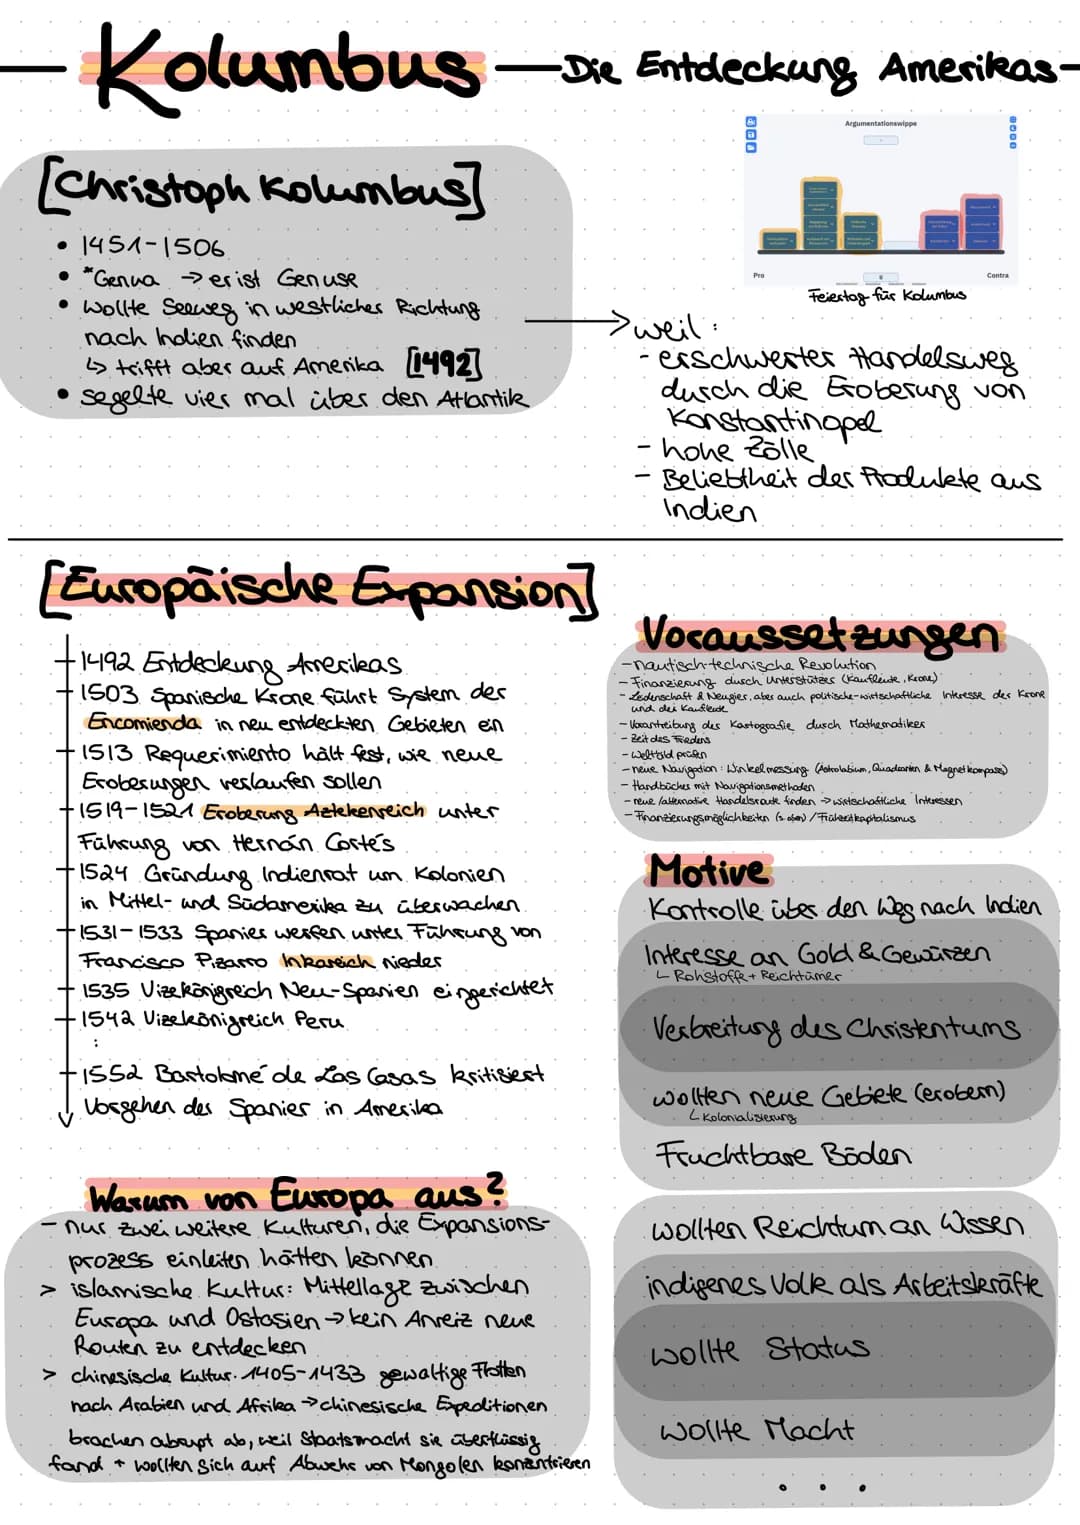 Kolumbus
Die Entdeckung Amerikas
[Christoph Kolumbus]
• 1451-1506
• *Genua → er ist Genuse
• wollte Seeweg in westlicher Richtung
nach Indien finden
↳ trifft aber auf Amerika [1492]
• segelte vier mal über den Atlantik
Argumentationswippe
Pro
Contra
Feiertag für Kolumbus
weil:
- erschwerter Handelsweg
durch die Eroberung von
Konstantinopel
- hohe Zölle
- Beliebtheit der Produkte aus
Indien
[Europäische Expansion]
1492 Entdeckung Amerikas
1503 Spanische Krone führt System der
Encomienda in neu entdeckten Gebieten ein
1513 Requerimiento hält fest, wie neue
Eroberungen verlaufen sollen
1519-1521 Eroberung Aztekenreich unter
Führung von Hernán Cortés
1524 Gründung Indienrat um Kolonien
in Mittel- und Südamerika zu überwachen
1531-1533 Spanier werfen unter Führung von
Francisco Pizarro Inkareich nieder
1535 Vizekönigreich Neu-Spanien eingerichtet
1542 Vizekönigreich Peru
:
1552 Bartolomé de Las Casas kritisiert
Vorgehen der Spanier in Amerika
Warum von Europa aus?
- nur zwei weitere Kulturen, die Expansions-
prozess einleiten hätten können
> islamische Kultur: Mittellage zwischen
Europa und Ostasien → kein Anreiz neue
Routen zu entdecken
> chinesische Kultur: 1405-1433 gewaltige Flotten
nach Arabien und Afrika → chinesische Expeditionen
brachen abrupt ab, weil Staatsmacht sie überflüssig
fand + wollten sich auf Abwehr von Mongolen konzentrieren
Voraussetzungen
- nautisch-technische Revolution
- Finanzierung durch Unterstützer (Kaufleute, Krone)
- Leidenschaft & Neugier, aber auch politische-wirtschaftliche Interesse der Krone
und der Kaufleute
- Vorantreibung der Kartografie durch Mathematiker
- Zeit des Friedens
- Weltbild prüfen
- neue Navigation: Winkelmessung (Astrolabium, Quadranten & Magnetkompass)
- Handbücher mit Navigationsmethoden
- neue/alternative Handelsroute finden → wirtschaftliche Interessen
- Finanzierungsmöglichkeiten (s. oben) / Frühzeitkapitalismus
Motive
Kontrolle über den Weg nach Indien
Interesse an Gold & Gewürzen
↳ Rohstoffe + Reichtümer
Verbreitung des Christentums
wollten neue Gebiete (erobern)
↳ Kolonialisierung
Fruchtbare Böden
wollten Reichtum an Wissen
indigenes Volk als Arbeitskräfte
wollte Status
wollte Macht
...